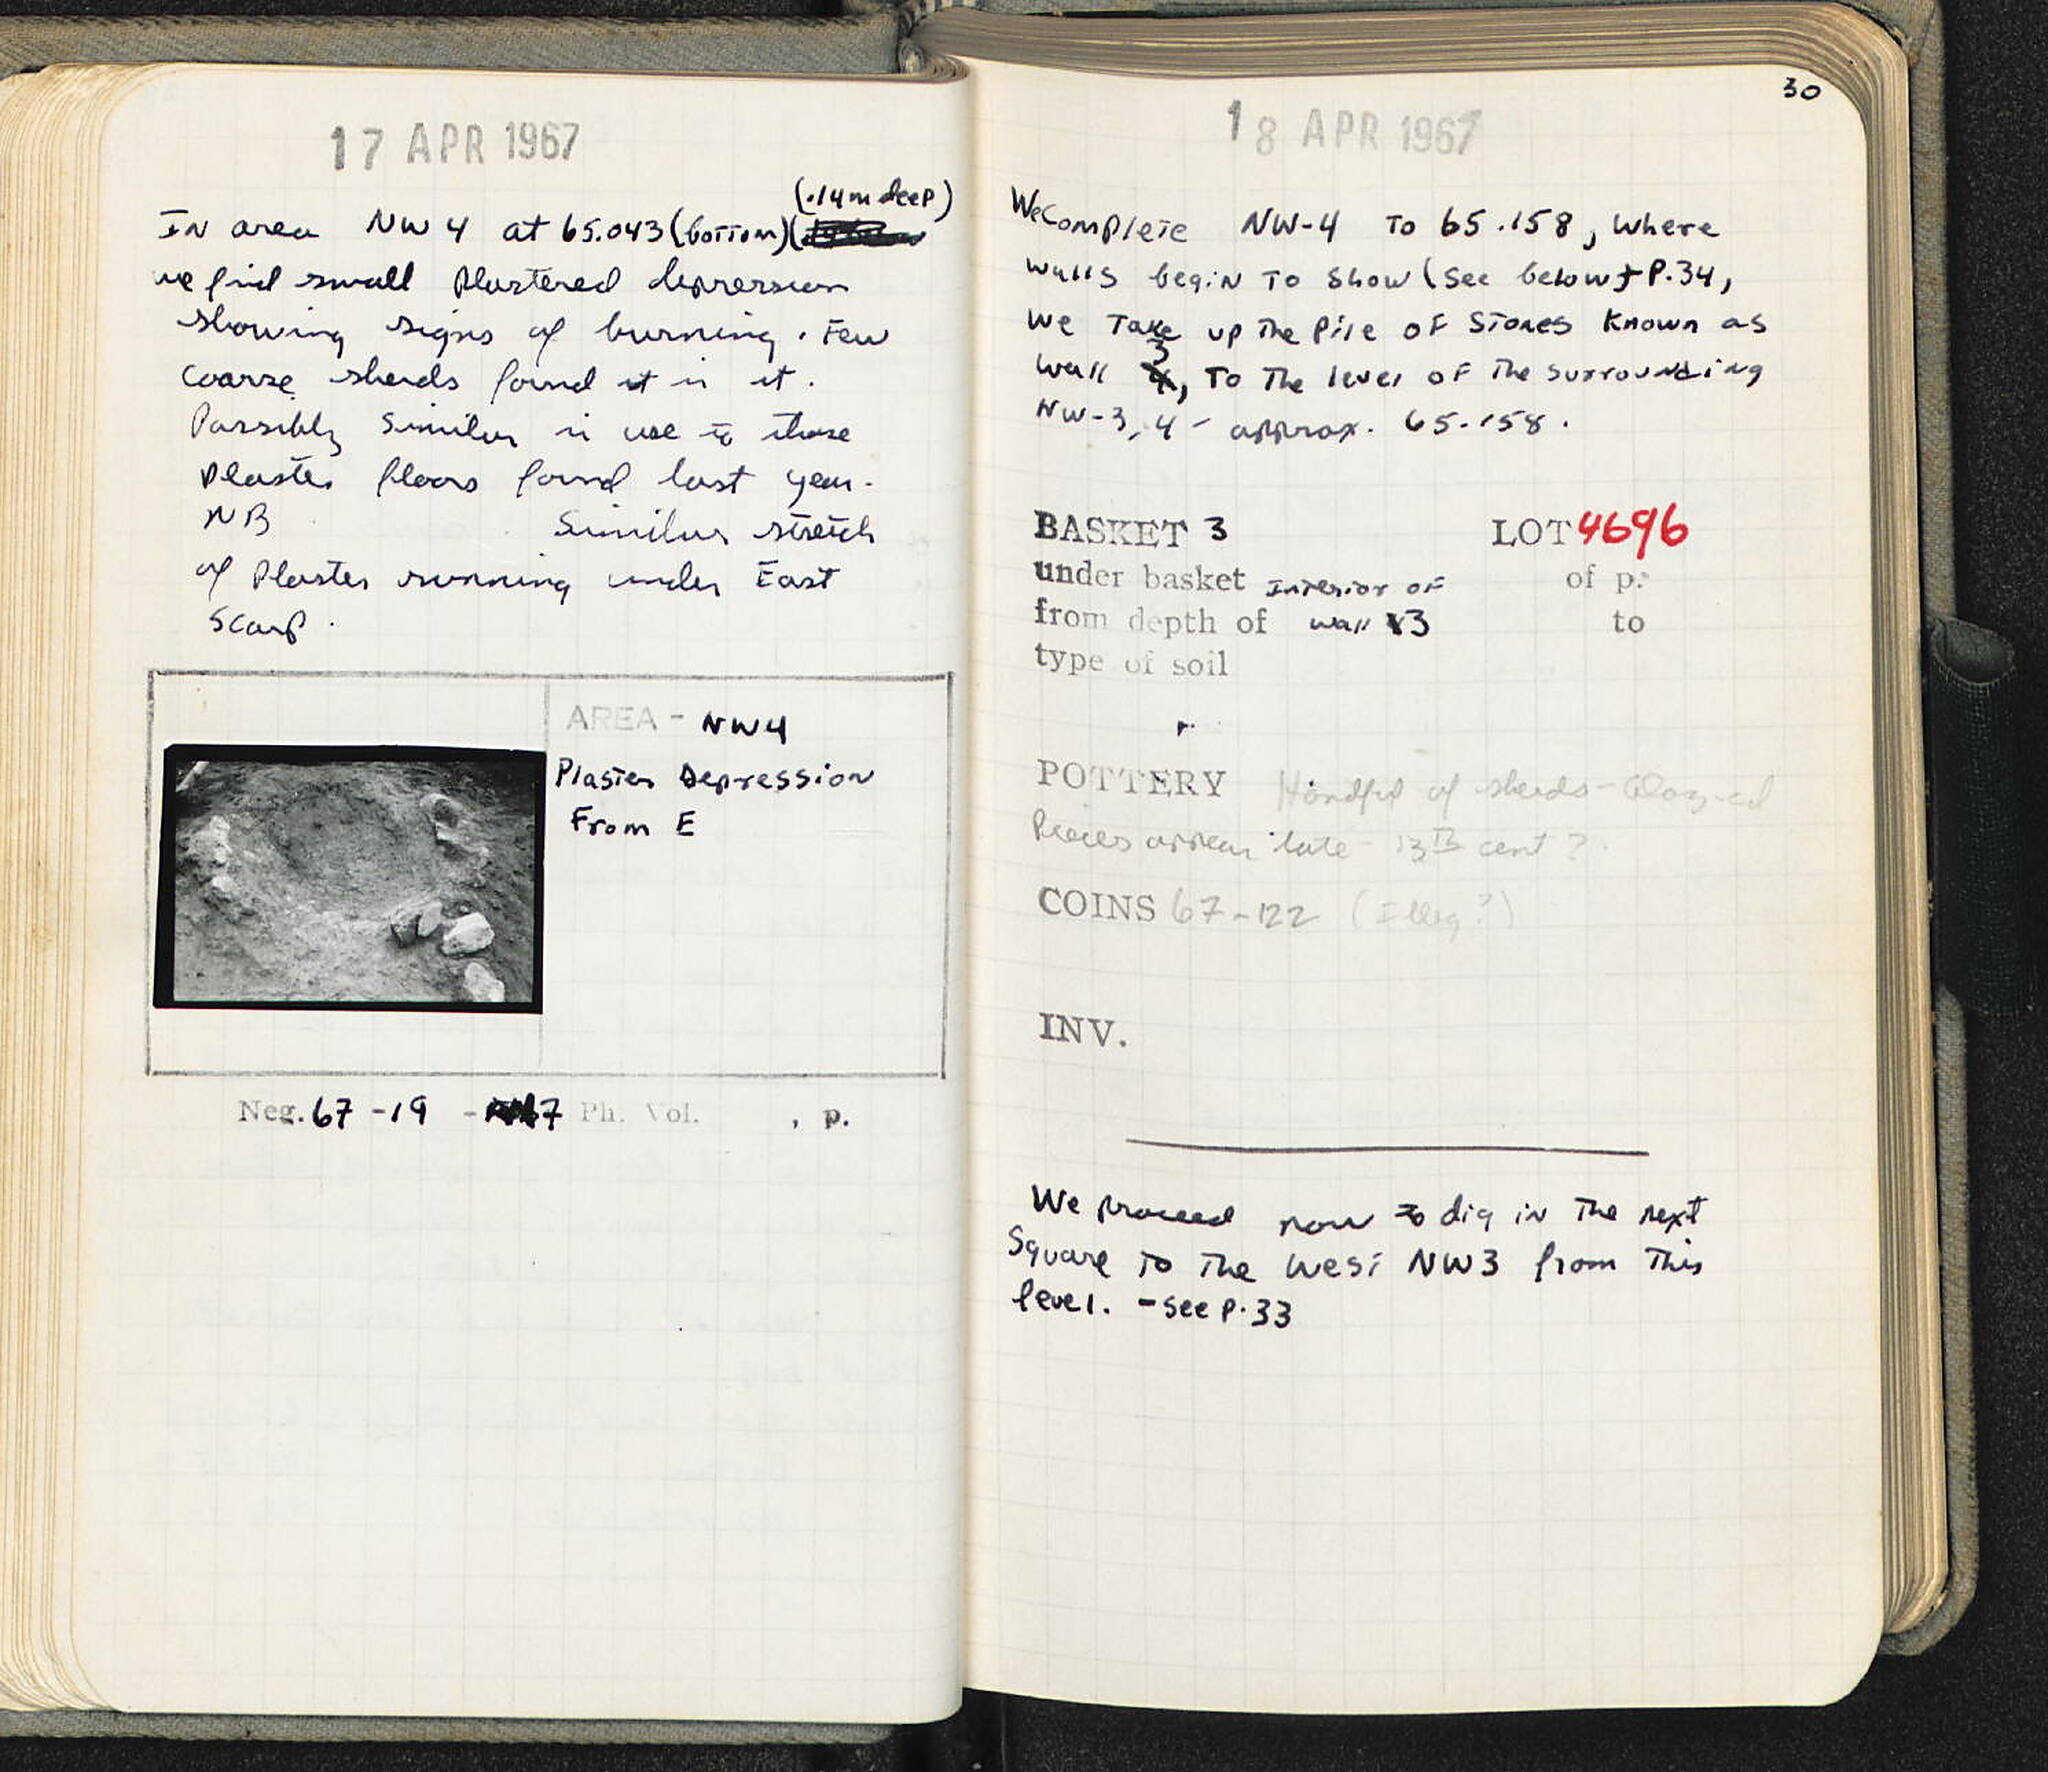 17 APR 1967
(.14m deep)
In area NW 4 at 65.043 (bottom) (
we find small plastered depression
showing signs of burning. Few
coarse sherds found it in it.
Possibly similar in use to those
plaster floors found last year.
NB Similar stretch
of plaster running under East
Scarp.
AREA - NW4
Plaster Depression
From E
Neg. 67 -19 - 7 Ph. Vol. , p.
30
18 APR 1967
We complete NW-4 to 65.158, where
walls begin to show (see below + P.34,
We take up the pile of stones known as
wall 3, to the level of the surrounding
NW-3, 4 - approx. 65.158.
BASKET 3 LOT 4696
under basket Interior of of p.
from depth of wall 3 to
type of soil
POTTERY Handful of sherds - Glazed
pieces appear late - 13th cent?
COINS 67-122 (Illeg?)
INV.
We proceed now to dig in the next
Square to the west NW3 from this
level. - see P. 33